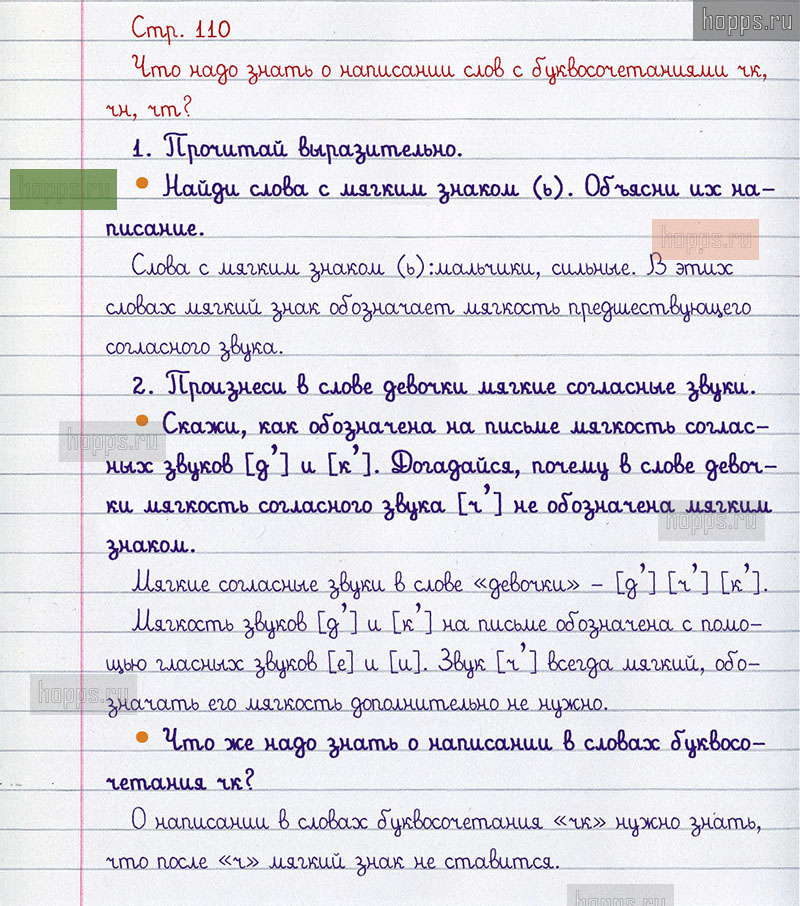 hopps.ru
Стр. 110
Что надо знать о написании слов с буквосочетаниями чк,
чн, чт?
1. Прочитай выразительно.
hopps.ru
• Найди слова с мягким знаком (ь). Объясни их на-
писание.
hopps.ru
Слова с мягким знаком (ь):мальчики, сильные. В этих
словах мягкий знак обозначает мягкость предшествующего
согласного звука.
2. Произнеси в слове девочки мягкие согласные звуки.
• Скажи, как обозначена на письме мягкость соглас-
hopps.ru
ных звуков [д'] и [к']. Догадайся, почему в слове девоч-
ки мягкость согласного звука [ч'] не обозначена мягким
hopps.ru
знаком.
Мягкие согласные звуки в слове «девочки» – [д'] [ч'] [к'].
Мягкость звуков [д'] и [к'] на письме обозначена с помо-
щью гласных звуков [е] и [и]. Звук [ч'] всегда мягкий, обо-
hopps.ru
значать его мягкость дополнительно не нужно.
• Что же надо знать о написании в словах буквосо-
четания чк?
О написании в словах буквосочетания «чк» нужно знать,
что после «ч» мягкий знак не ставится.
hopps.ru